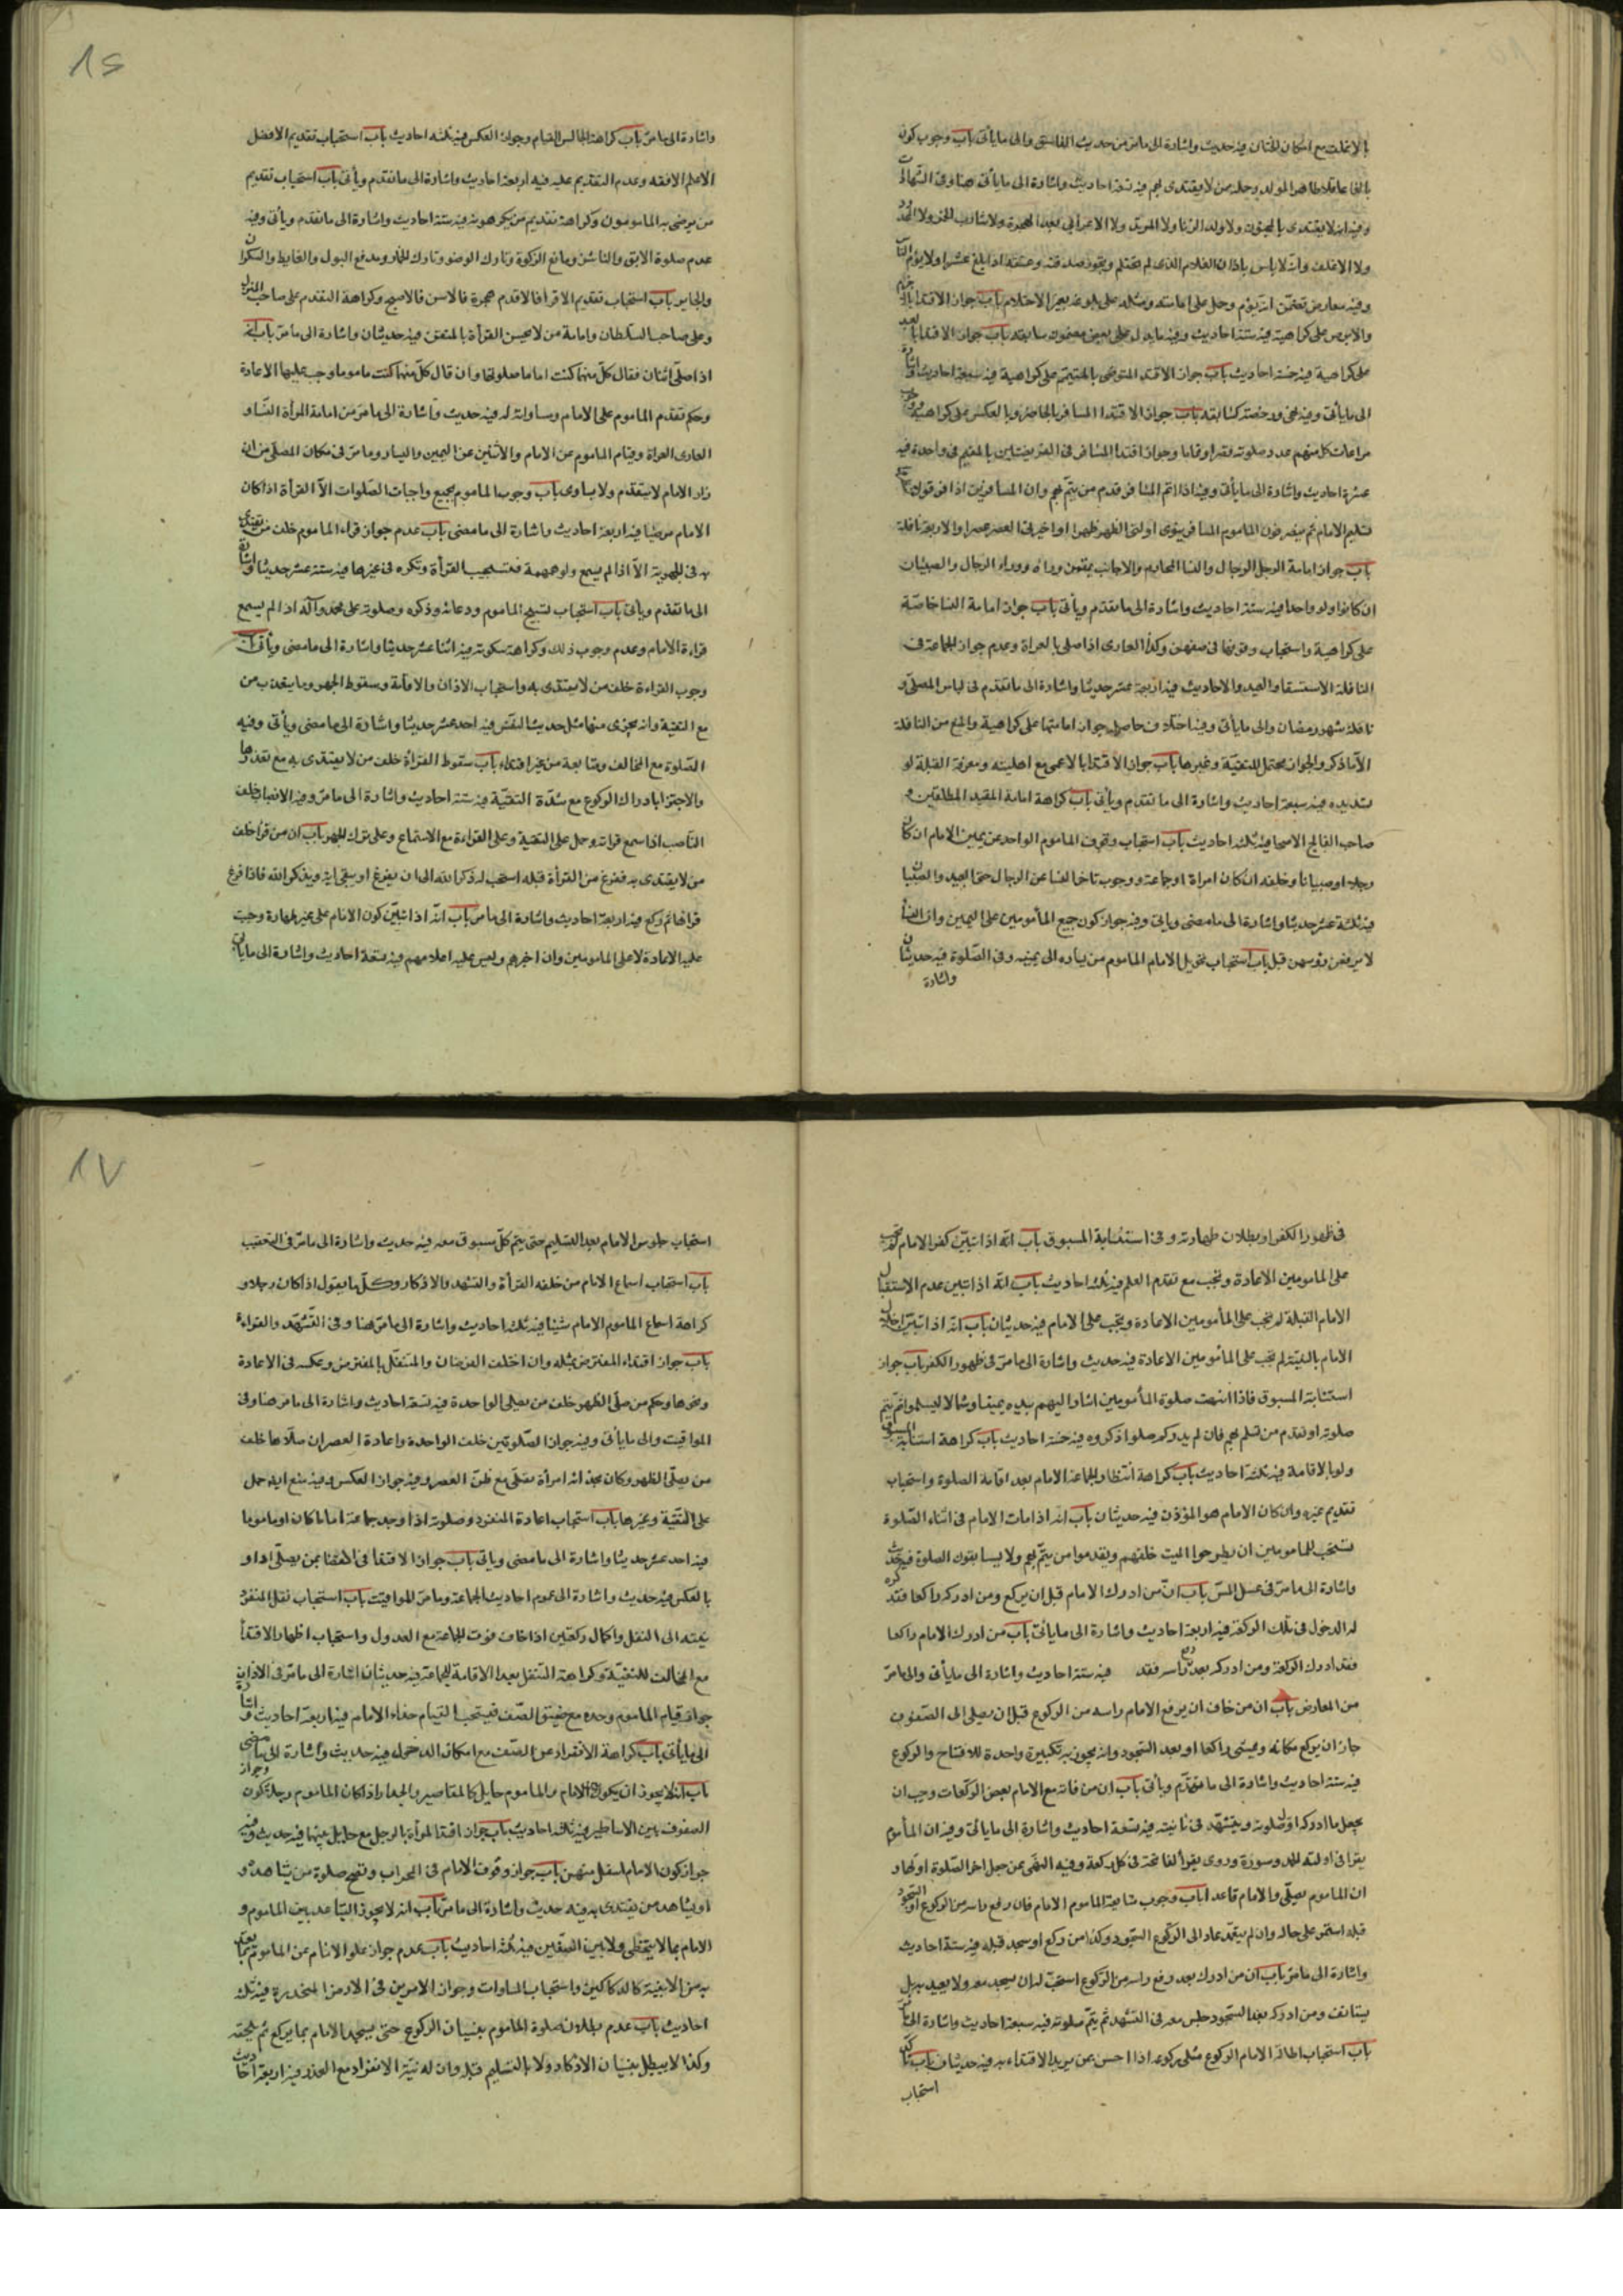 بالاغلف مع امكان الختان فيه حديث واشارة الى مامر من حديث الفاسق والى ما يأتى باب وجوب كون
وفيه انه لا يقتدى بالمجنون ولا ولد الزنا ولا المرتد ولا الاعرابى بعد الهجرة ولا شارب الخمر ولا
ولا الاغلف وانه لا باس باذان الغلام الذى لم يحتلم
على كراهية فيه خمسة احاديث باب جواز الاقتداء المتوضى بالمتيمم على كراهية فيه سبعة احاديث
باب جواز اقتداء المسافر بالحاضر وبالعكس على كراهية
عشرة احاديث واشارة الى ما يأتى وفيه اذا اتم المسافر قدم من يتم بهم
باب جواز امامة الرجل الرجال والنساء المحارم والاجانب يقفون وراءه ووراء الرجال والصبيان
ان كانوا ولو واحدا فيه ستة احاديث واشارة الى ما تقدم ويأتى باب جواز امامة النساء خاصة
على كراهية واستحباب وقوفها فى صفهن وكذا العارى اذا صلى بالعراة وعدم جواز الجماعة فى
النافلة الا الاستسقاء والعيد والاحاديث فيه اربعة عشر حديثا واشارة الى ما تقدم فى لباس المصلى و
نافلة شهر رمضان والى ما يأتى
الا ما ذكر والجواز محتمل للتقية وغيرها باب جواز الاقتداء بالاعمى مع اهليته ومعرفة القبلة او
تسديده فيه سبعة احاديث واشارة الى ما تقدم ويأتى باب كراهة امامة المقيد المطلقين و
صاحب الفالج الاصحاء فيه ثلثة احاديث باب استحباب وقوف الماموم الواحد عن يمين الامام ان كان
رجلا او صبيانا وخلفه ان كان امرأة او جماعة ووجوب تأخر النساء عن الرجال حتى العبيد والصبيان
فيه ثلثة عشر حديثا واشارة الى ما مضى ويأتى وفيه جواز كون جميع المأمومين على اليمين وان النساء
لا يرفعن رؤسهن قبل باب استحباب تحويل الامام الماموم من يساره الى يمينه وفى الصلوة فيه حديثان
واشارة
١٦
واشارة الى ما مر باب كراهة الجالس القيام وجواز العكس فيه ثلثة احاديث باب استحباب تقديم الافضل
الاعلم الافقه وعدم التقديم عليه فيه اربعة احاديث واشارة الى ما تقدم ويأتى باب استحباب تقديم
من يرضى به المامومون وكراهة تقديم من يكرهونه فيه ستة احاديث واشارة الى ما تقدم ويأتى وفيه
عدم صلوة الابق والناشز ومانع الزكوة وتارك الوضوء وتارك الخمار ومدافع البول والغايط والسكران
باب استحباب تقديم الاقرأ فالاقدم هجرة فالاسن فالاصبح وكراهة التقدم على صاحب المنزل
وعلى صاحب السلطان وامامة من لا يحسن القرأة بالمتقن فيه حديثان واشارة الى ما مر باب انه
اذا صلى اثنان فقال كل منهما كنت اماما صلوتهما وان قال كل منهما كنت ماموما وجب عليهما الاعادة
وحكم تقدم الماموم على الامام ومساواته له فيه حديث واشارة الى ما مر من امامة المرأة النساء و
العارى العراة وقيام الماموم عن الامام والاثنين عن اليمين واليسار وما مر فى مكان المصلى من ان
زار الامام لا يتقدم ولا يساوى باب وجوب الماموم بجميع واجبات الصلوات الا القرأة اذا كان
الامام مرضيا فيه اربعة احاديث واشارة الى ما مضى باب عدم جواز قراءة الماموم خلف من يقتدى
به فى الجهرية الا اذا لم يسمع ولو همهمة فتستحب القرأة وتكره فى غيرها فيه ستة عشر حديثا واشارة
الى ما تقدم ويأتى باب استحباب تسبيح الماموم ودعائه وذكره وصلوته على محمد وآله اذا لم يسمع
قراءة الامام وعدم وجوب ذلك وكراهة سكوته فيه اثنا عشر حديثا واشارة الى ما مضى ويأتى
وجوب القراءة خلف من لا يقتدى به واستحباب الاذان والاقامة وسقوط الجهر وما يتعذر من
مع التقية وانه يجزى منها مثل حديث النفس فيه احد عشر حديثا واشارة الى ما مضى ويأتى وفيه
الصلوة مع المخالف ومتابعة من غير اقتداء باب سقوط القرأة خلف من لا يقتدى به مع تعذرها
والاجتزاء بادراك الركوع مع شدة التقية فيه ستة احاديث واشارة الى ما مر وفيه الانصات خلف
الناصب اذا سمع قراته وحمل على التقية وعلى القراءة مع الاستماع وعلى ترك الجهر باب ان من قرأ خلف
من لا يقتدى به ففرغ من القرأة قبله استحب له ذكر الله الى ان يفرغ او يبقى اية ويذكر الله فاذا فرغ
قراها ثم ركع فيه اربعة احاديث واشارة الى ما مر باب انه اذا تبين كون الامام على غير طهارة وجبت
عليه الاعادة لا على المامومين وان اخبرهم وليس عليه اعلامهم فيه تسعة احاديث واشارة الى ما يأتى
فى ظهور الكفر او بطلان طهارته وفى استنابة المسبوق باب انه اذا تبين كفر الامام لم تجب
على المامومين الاعادة وتجب مع تقدم العلم فيه ثلثة احاديث باب انه اذا تبين عدم الاستقبال
الامام القبلة لم تجب على المأمومين الاعادة وتجب على الامام فيه حديثان باب انه اذا تبين اخلال
الامام بالنية لم تجب على المأمومين الاعادة فيه حديث واشارة الى ما مر فى ظهور الكفر باب جواز
استنابة المسبوق فاذا انتهت صلوة المأمومين اشار اليهم بيده يمينا وشمالا ليسلموا ثم يتم
صلوته او تقدم من تسلم بهم فان لم يدر كم صلوا ذكروه فيه خمسة احاديث باب كراهة استنابة المسبوق
ولو بالاقامة فيه ثلثة احاديث باب كراهة انتظار الجماعة الامام بعد اقامة الصلوة واستحباب
تقديم غيره وان كان الامام هو المؤذن فيه حديثان باب انه اذا مات الامام فى اثناء الصلوة
يستحب للمامومين ان يطرحوا الميت خلفهم ويقدموا من يتم بهم ولا يسابقوك الصلوة فيه حديث
واشارة الى ما مر فى غسل المس باب ان من ادرك الامام قبل ان يركع ومن ادركه راكعا فقد كره
له الدخول فى تلك الركعة فيه اربعة احاديث واشارة الى ما يأتى باب من ادرك الامام راكعا
فقد ادرك الركعة ومن ادركه بعد رفع راسه فقد فيه ستة احاديث واشارة الى ما يأتى والى ما مر
من المعارض باب ان من خاف ان يرفع الامام راسه من الركوع قبل ان يصل الى الصفوف
جاز ان يركع مكانه ويمشى راكعا او بعد السجود وانه يجوز به تكبيرة واحدة للافتتاح والركوع
فيه ستة احاديث واشارة الى ما تقدم ويأتى باب ان من فاته مع الامام بعض الركعات وجب ان
يجعل ما ادركه اول صلوته ويتشهد فى ثانيته فيه تسعة احاديث واشارة الى ما يأتى وفيه ان المأموم
يقرأ فى اولته الحمد وسورة وروى يقرأ الفاتحة فى كل ركعة وفيه النهى عن جعل اخر الصلوة اولها و
ان الماموم يصلى والامام قاعدا باب وجوب متابعة الماموم الامام فان رفع راسه من الركوع او السجود
قبله استمر على حاله وان لم يتعمد عاد الى الركوع السجود وكذا من ركع او سجد قبله فيه ستة احاديث
واشارة الى ما مر باب ان من ادرك بعد رفع راسه من الركوع استحب له ان يسجد معه ولا يعيد به بل
يستانف ومن ادركه بعد السجود جلس معه فى التشهد ثم يتم صلوته فيه سبعة احاديث واشارة الى ما مر
باب استحباب اطالة الامام الركوع مثلى ركوعه اذا احس بمن يريد الاقتداء به فيه حديثان باب تأكد
استحباب
١٧
استحباب جلوس الامام بعد التسليم حتى يتم كل مسبوق معه فيه حديث واشارة الى ما مر فى التعقيب
باب استحباب اسماع الامام من خلفه القرأة والتشهد والاذكار وكل ما يقول اذا كان رجلا و
كراهة اسماع الماموم الامام شيئا فيه ثلثة احاديث واشارة الى ما مر هنا وفى التشهد والقراءة
باب جواز اقتداء المفترض بمثله وان اختلف الفرضان والمتنفل بالمفترض وعكسه فى الاعادة
ونحوها وحكم من صلى الظهر خلف من يصلى الواحدة فيه تسعة احاديث واشارة الى ما مر هنا وفى
المواقيت والى ما يأتى وفيه جواز الصلوتين خلف الواحدة واعادة العصر ان صلاها خلف
من يصلى الظهر وكان بحذائه امرأة تصلى مع ظن العصر وفيه جواز العكس وفيه منع ايضا حمل
على التقية وغيرها باب استحباب اعادة المنفرد وصلوته اذا وجد جماعة اماما كان او ماموما
فيه احد عشر حديثا واشارة الى ما مضى ويأتى باب جواز الاقتداء فى القضاء بمن يصلى اداء او
بالعكس فيه حديث واشارة الى عموم احاديث الجماعة وما مر المواقيت باب استحباب نقل المنفرد
نيته الى النفل واكمال ركعتين اذا خاف فوت الجماعة مع العدول واستحباب اظهار الاقتداء
مع المخالف للتقية وكراهة التنفل بعد الاقامة للجماعة فيه حديثان اشارة الى ما مر فى الاذان
جواز قيام الماموم وحده مع ضيق الصف فيستحب القيام حذاء الامام فيه اربعة احاديث واشارة
الى ما يأتى باب كراهة الانفراد عن الصف مع امكان الدخول فيه حديث واشارة الى ما مضى
باب انه لا يجوز ان يكون بين الامام والماموم حايل كالمقاصير والجدار اذا كان الماموم رجلا وجواز كون
الصفوف بين الاساطين فيه ثلثة احاديث باب جواز اقتداء المرأة بالرجل مع حايل بينهما فيه حديث وفيه
جواز كون الامام اسفل منهن باب جواز وقوف الامام فى المحراب وتصح صلوة من يشاهده و
او يشاهد من يقتدى به فيه حديث واشارة الى ما مر باب انه لا يجوز التباعد بين الماموم و
الامام بما لا يتخطى ولا بين الصفين فيه ثلثة احاديث باب عدم جواز علو الامام عن الماموم بما يعتد
به من الابنية كالدكاكين واستحباب المساوات وجواز الامرين فى الارض المنحدرة فيه ثلثة
احاديث باب عدم بطلان صلوة الماموم بنسيان الركوع حتى يسجد الامام بما يركع ثم يلحقه
وكذا لا يبطل بنسيان الاذكار ولا بالتسليم قبله وان له نية الانفراد مع العذر فيه اربعة احاديث